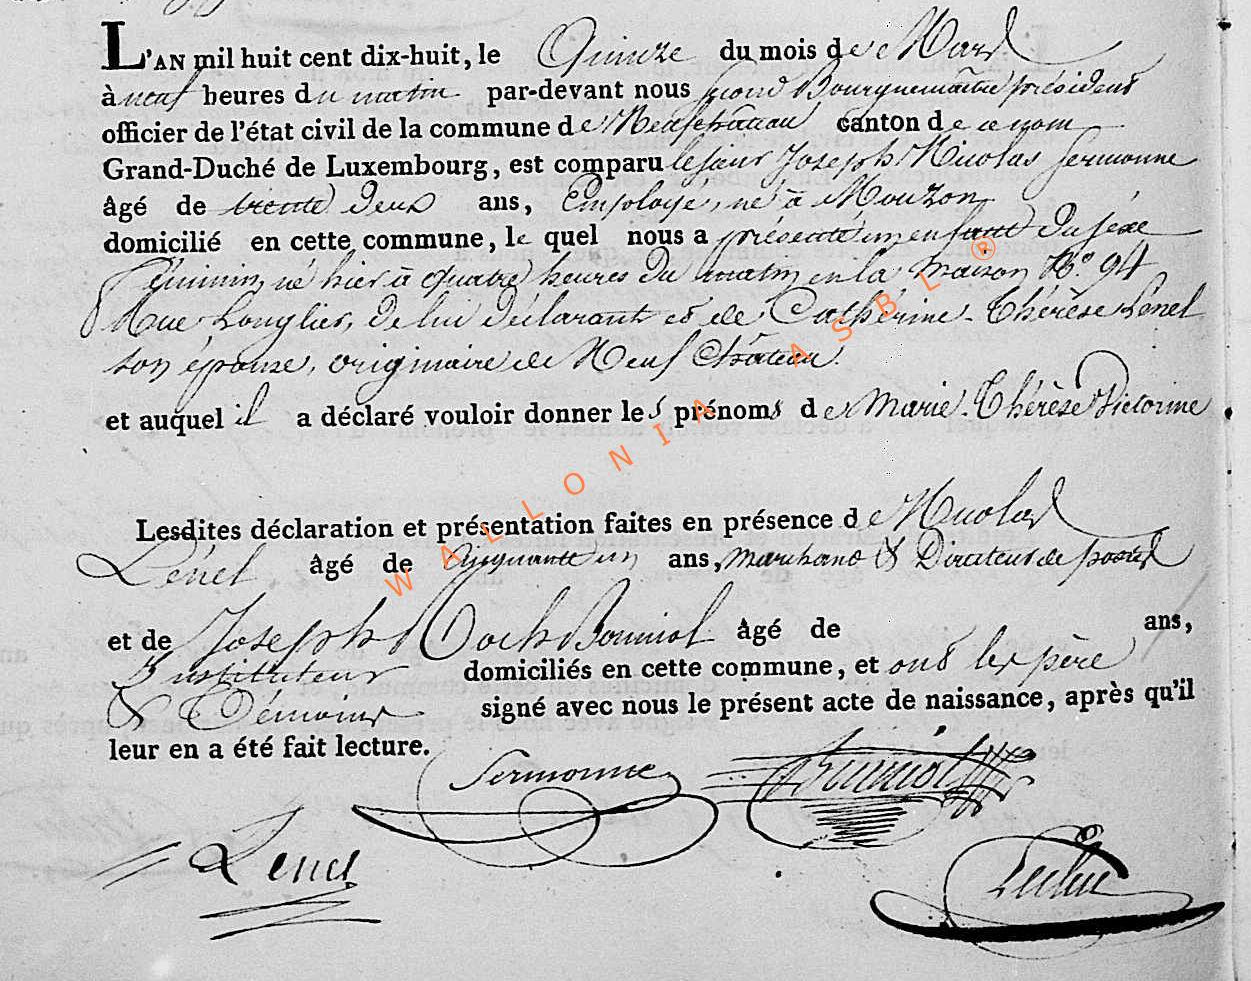 L'AN mil huit cent dix-huit, le Quinze du mois de Mars
à neuf heures du matin par-devant nous second Bourguemaître président
officier de l'état civil de la commune de Neufchateau canton de ce nom
Grand-Duché de Luxembourg, est comparu le sieur Joseph Nicolas Sermonne
âgé de trente deux ans, Employé, né à Mouzon
domicilié en cette commune, le quel nous a présenté un enfant du séxe
féminin, né hier à quatre heures du matin en la maison No 94
Rue Longlier, de lui déclarant et de Cathérine-Thérèse Lenel
son épouse, originaire de Neuf Château.
et auquel il a déclaré vouloir donner les prénoms de Marie-Thérèse Victorine
Lesdites déclaration et présentation faites en présence de Nicolas
Lénel âgé de Cinquante un ans, marchand & Directeur de postes
et de Joseph Roch Bonniol âgé de ans,
Instituteur domiciliés en cette commune, et ont les père
& Témoins signé avec nous le présent acte de naissance, après qu'il
leur en a été fait lecture.
Sermonne
Lenel
WALLONIA ASBL ®